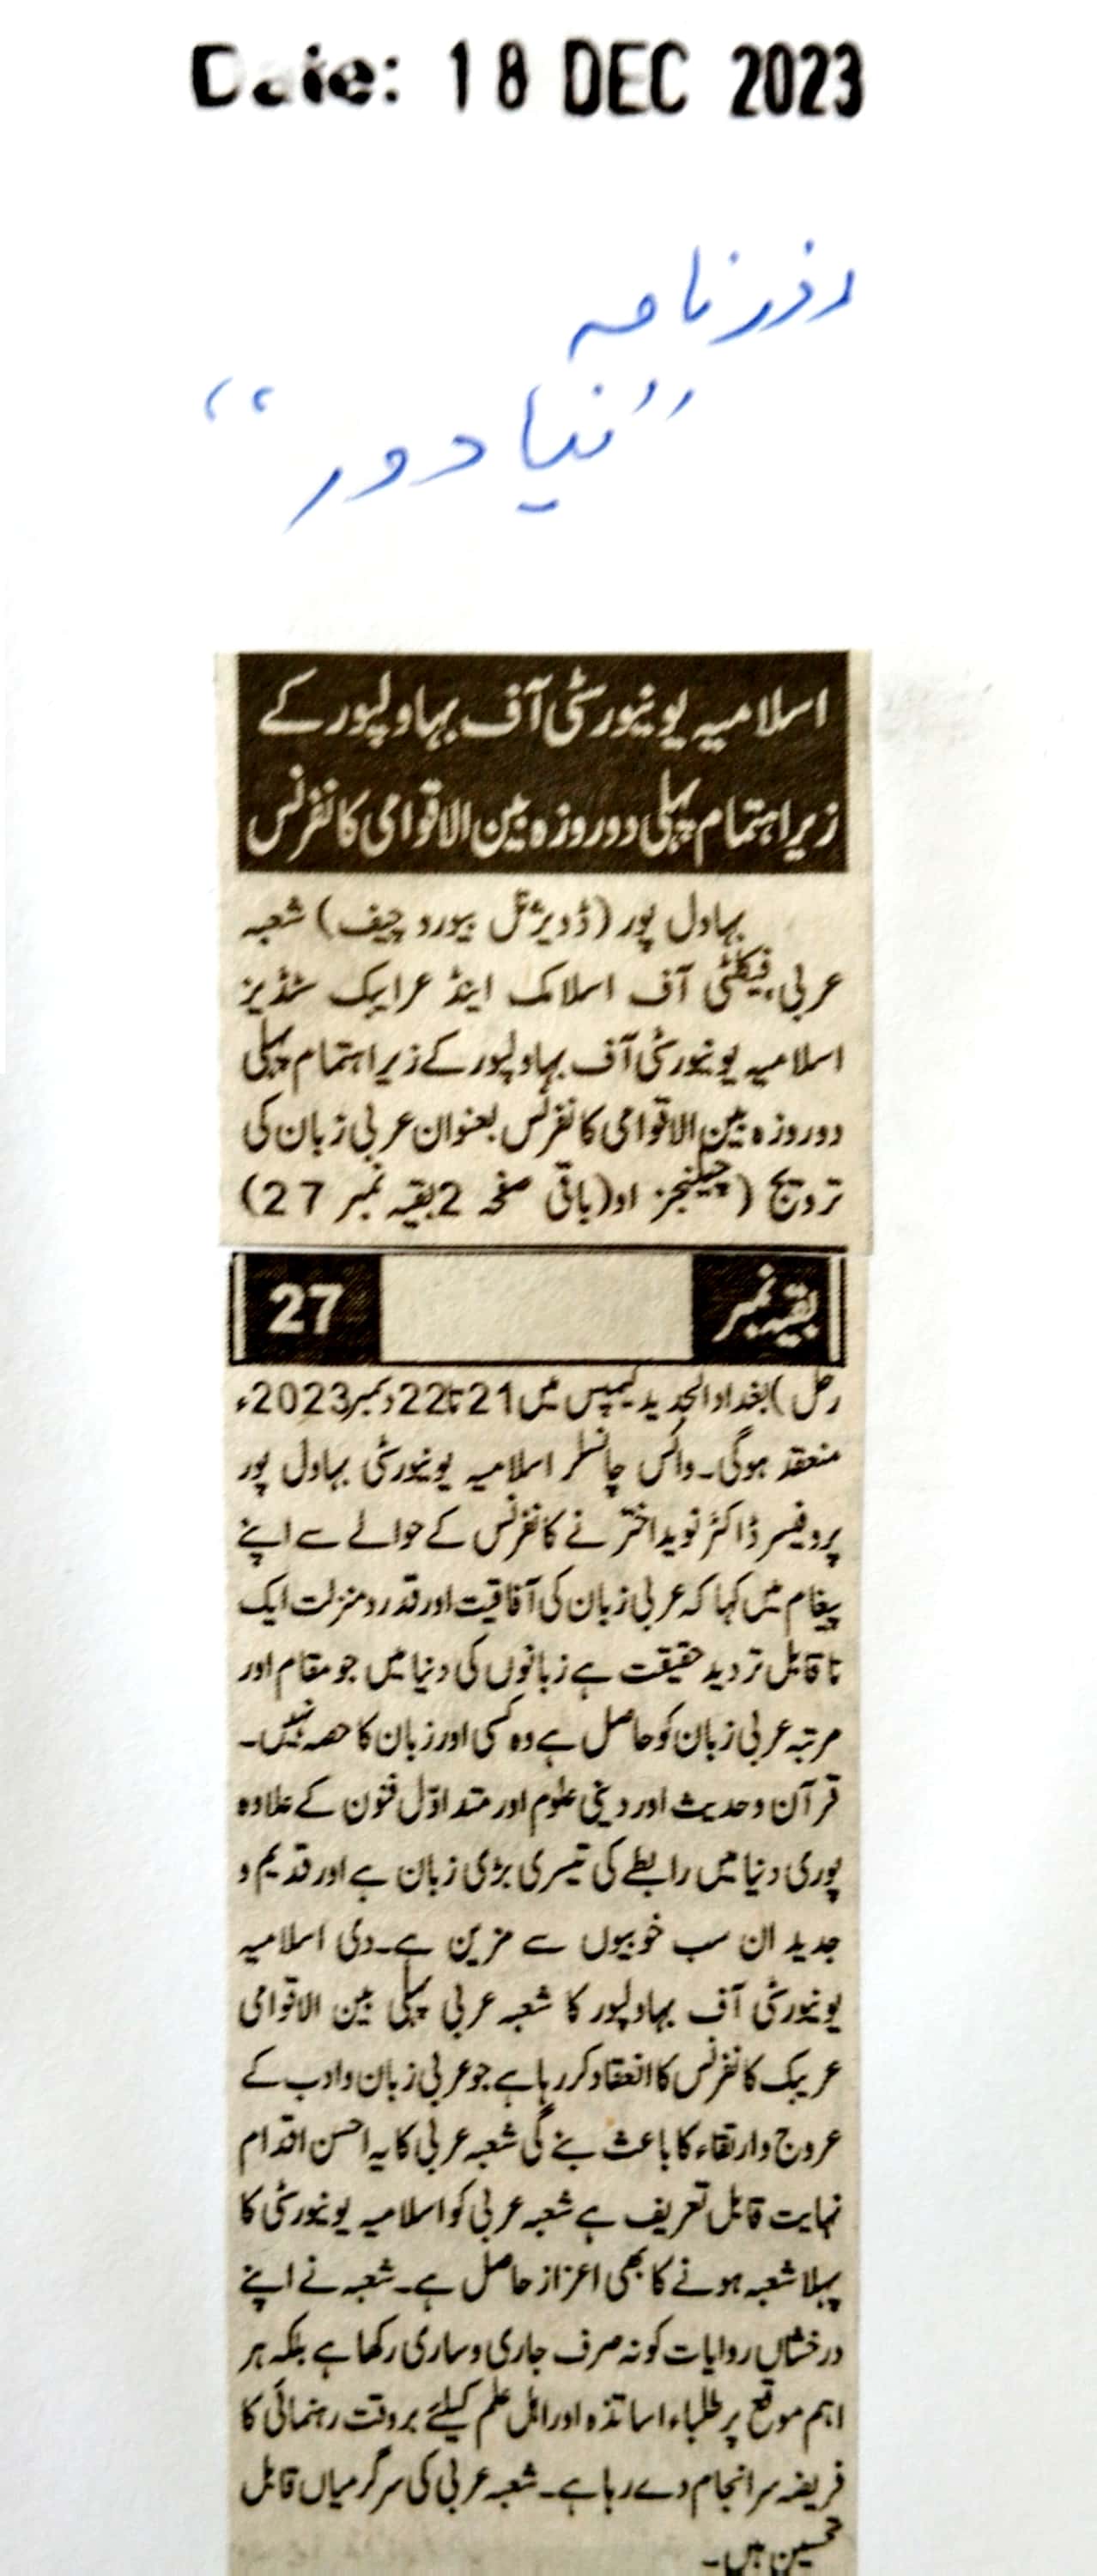 Date: 18 DEC 2023
روزنامہ
”نیا دور“
اسلامیہ یونیورسٹی آف بہاولپور کے
زیر اہتمام پہلی دو روزہ بین الاقوامی کانفرنس
بہاول پور (ڈویژنل بیورو چیف) شعبہ
عربی، فیکلٹی آف اسلامک اینڈ عرابیک سٹڈیز
اسلامیہ یونیورسٹی آف بہاولپور کے زیر اہتمام پہلی
دو روزہ بین الاقوامی کانفرنس بعنوان عربی زبان کی
ترویج (چیلنجز او(باقی صفحہ 2 بقیہ نمبر 27)
بقیہ نمبر 27
رحل) بغداد الجدید کیمپس میں 21 تا 22 دسمبر 2023ء
منعقد ہوگی۔ وائس چانسلر اسلامیہ یونیورسٹی بہاول پور
پروفیسر ڈاکٹر نوید اختر نے کانفرنس کے حوالے سے اپنے
پیغام میں کہا کہ عربی زبان کی آفاقیت اور قدر و منزلت ایک
نا قابل تردید حقیقت ہے زبانوں کی دنیا میں جو مقام اور
مرتبہ عربی زبان کو حاصل ہے وہ کسی اور زبان کا حصہ نہیں۔
قرآن و حدیث اور دینی علوم اور متداوّل فنون کے علاوہ
پوری دنیا میں رابطے کی تیسری بڑی زبان ہے اور قدیم و
جدید ان سب خوبیوں سے مزین ہے۔ دی اسلامیہ
یونیورسٹی آف بہاولپور کا شعبہ عربی پہلی بین الاقوامی
عریبک کانفرنس کا انعقاد کر رہا ہے جو عربی زبان و ادب کے
عروج و ارتقاء کا باعث بنے گی شعبہ عربی کا یہ احسن اقدام
نہایت قابل تعریف ہے شعبہ عربی کو اسلامیہ یونیورسٹی کا
پہلا شعبہ ہونے کا بھی اعزاز حاصل ہے۔ شعبہ نے اپنے
درخشاں روایات کو نہ صرف جاری و ساری رکھا ہے بلکہ ہر
اہم موقع پر طلباء اساتذہ اور اہل علم کیلئے بروقت رہنمائی کا
فریضہ سرانجام دے رہا ہے۔ شعبہ عربی کی سرگرمیاں قابل
تحسین ہیں۔